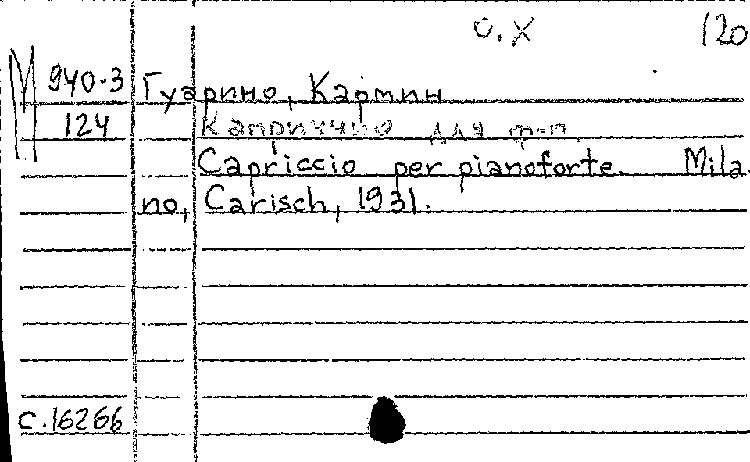 О.Х 120
М 940-3 Гуарино, Кармин
124 Каприччио для ф-п.
Capriccio per pianoforte. Mila-
no, Carisch, 1931.
с.16266